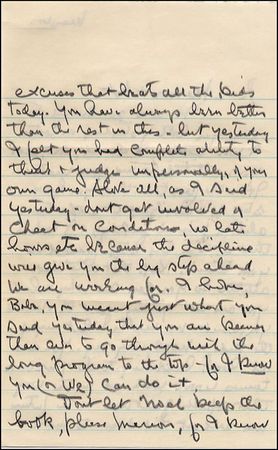 excuses that beats all the kids
today. You have always been better
than the rest in this - but yesterday
I felt you had complete ability to
think & judge impersonally, of your
own game. Above all, as I said
yesterday - dont get involved &
cheat on conditions, no late
hours etc because the discipline
will give you the big step ahead
we are working for. I hope,
you meant just what you
said yesterday that you are
than ever to go through with the
long program to the top - for I know
you (or we) can do it
Dont let keep the
book, please, for I know